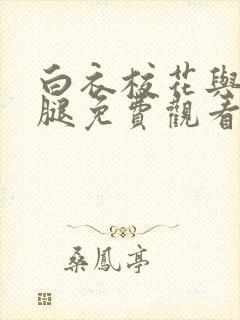 白衣校花與
腿免費觀看
桑鳳亭